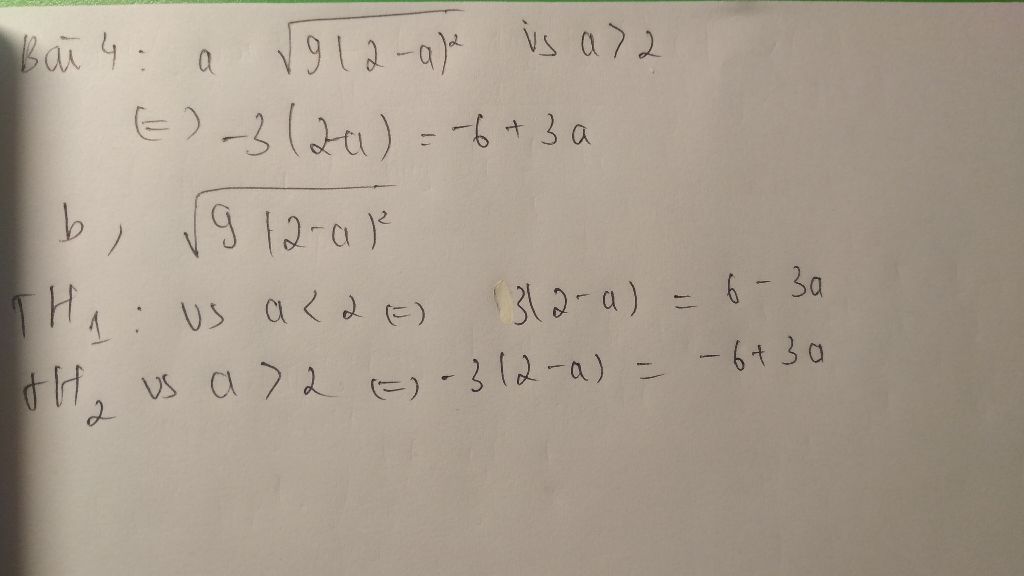 Bài 4: a √9(2-a)² vs a>2
(=) -3(2-a) = -6+3a
b, √9(2-a)²
TH₁: vs a<2 (=) 3(2-a) = 6-3a
TH₂ vs a>2 (=) -3(2-a) = -6+3a